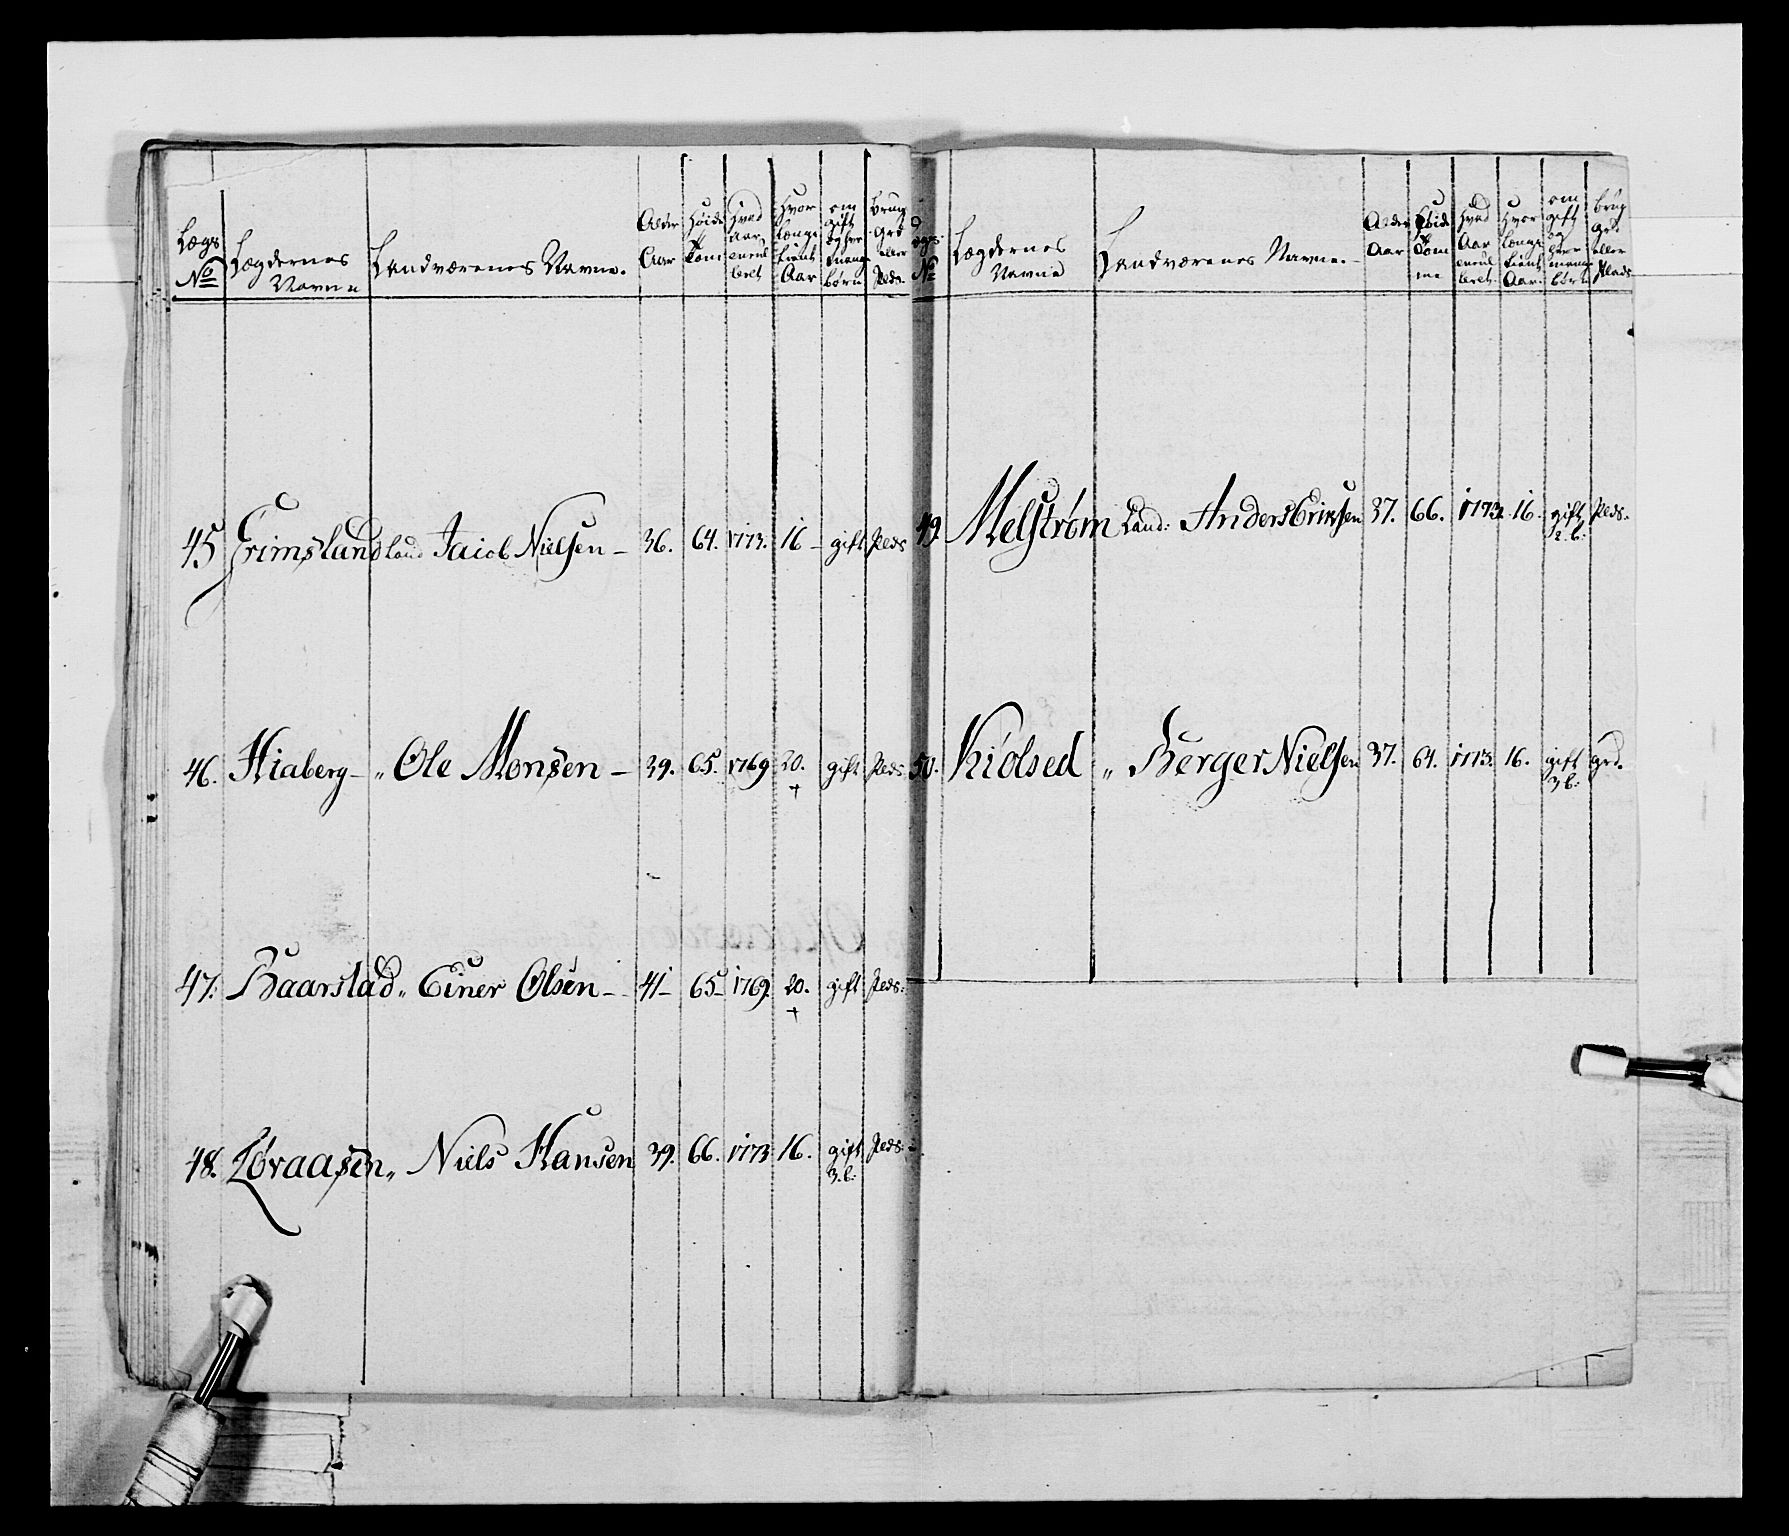 Lægs No | Lægdernes Navne | Landværenes Navne. | Alder Aar | Høide Tom | Hvad Aar enroul leret | Hvor længe tient Aar | om gift og hvor mange børn | brug Grd eller Plds.
45 Grimsland Land Jaicob Nielsen – 36. 64. 1773. 16 – gift Plds
46. Hiaberg – „ Ole Monsen – 39. 65. 1769 20. gift Plds
+
47. Baarstad „ Einer Olsen – 41 – 65 – 1769. 20. gift Plds.
+
48. Løraasen „ Niels Hansen 39. 66. 1773 16. gift Plds.
3. b.
Lægs No | Lægdernes Navne | Landværenes Navne. | Alder Aar | Høide Tom me | Hvad Aar enroul leret. | Hvor længe tient Aar. | om gift og hvor mange børn | brug grd eller Plads
49. Melstrøm Land: Anders Eriksen 37. 66. 1773. 16. gift Plds.
2. b.
50. Kiolsed „ Berger Nielsen 37. 64. 1773. 16. gift grd.
3 b.